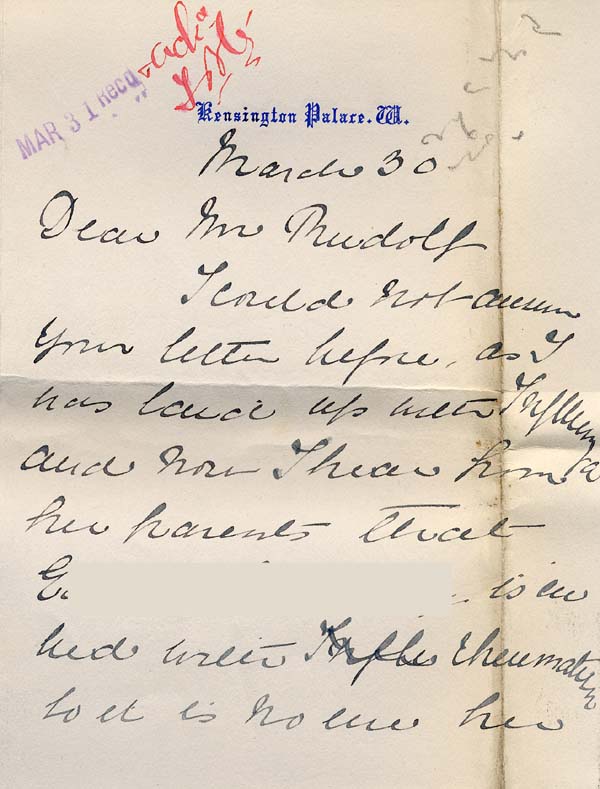 MAR 31 Recd
Kensington Palace. W.
March 30
Dear Mr Rudolf
I could not answer
your letter before, as I
was laid up with Influenza
and now I hear from
her parents that
E. is in
bed with Rheumatism
so it is no use her